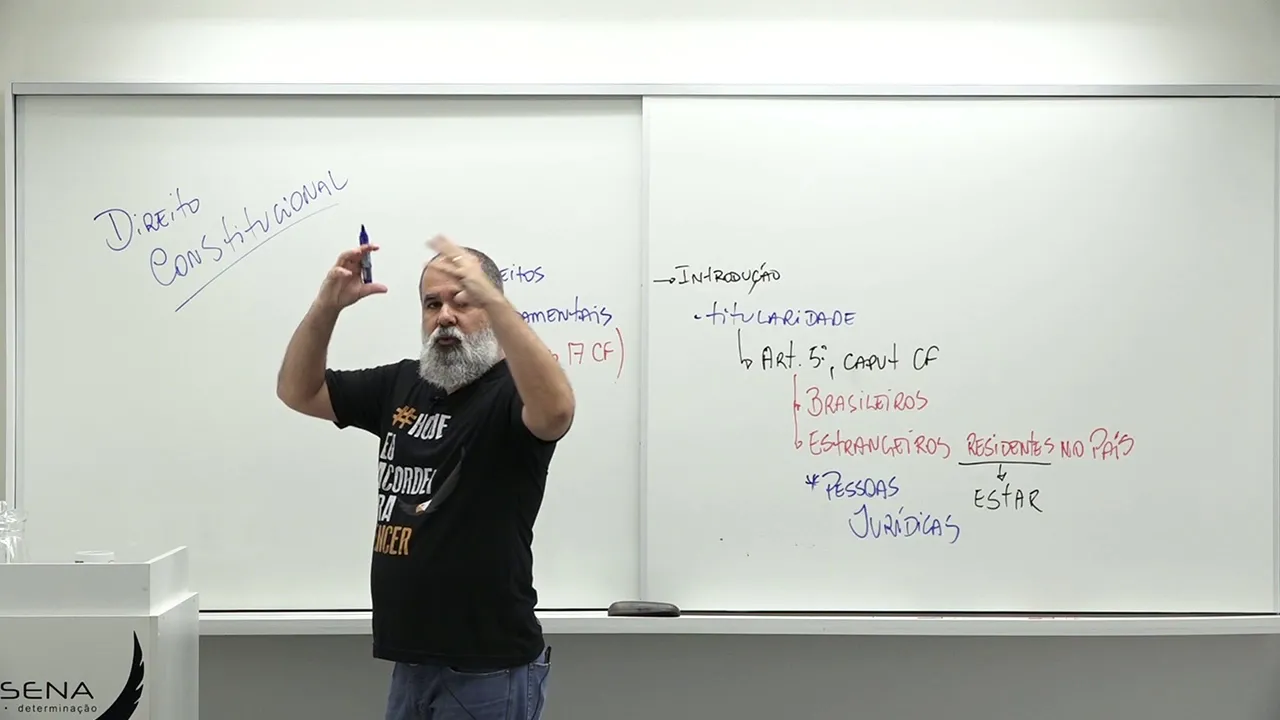 Direito
Constitucional
eitos
amentais
17 CF)
→ Introdução
• titularidade
Art. 5º, caput CF
Brasileiros
Estrangeiros residentes no País
Estar
* Pessoas
Jurídicas
#HOJE
EU
ACORDEI
RA
ENCER
SENA
• determinação